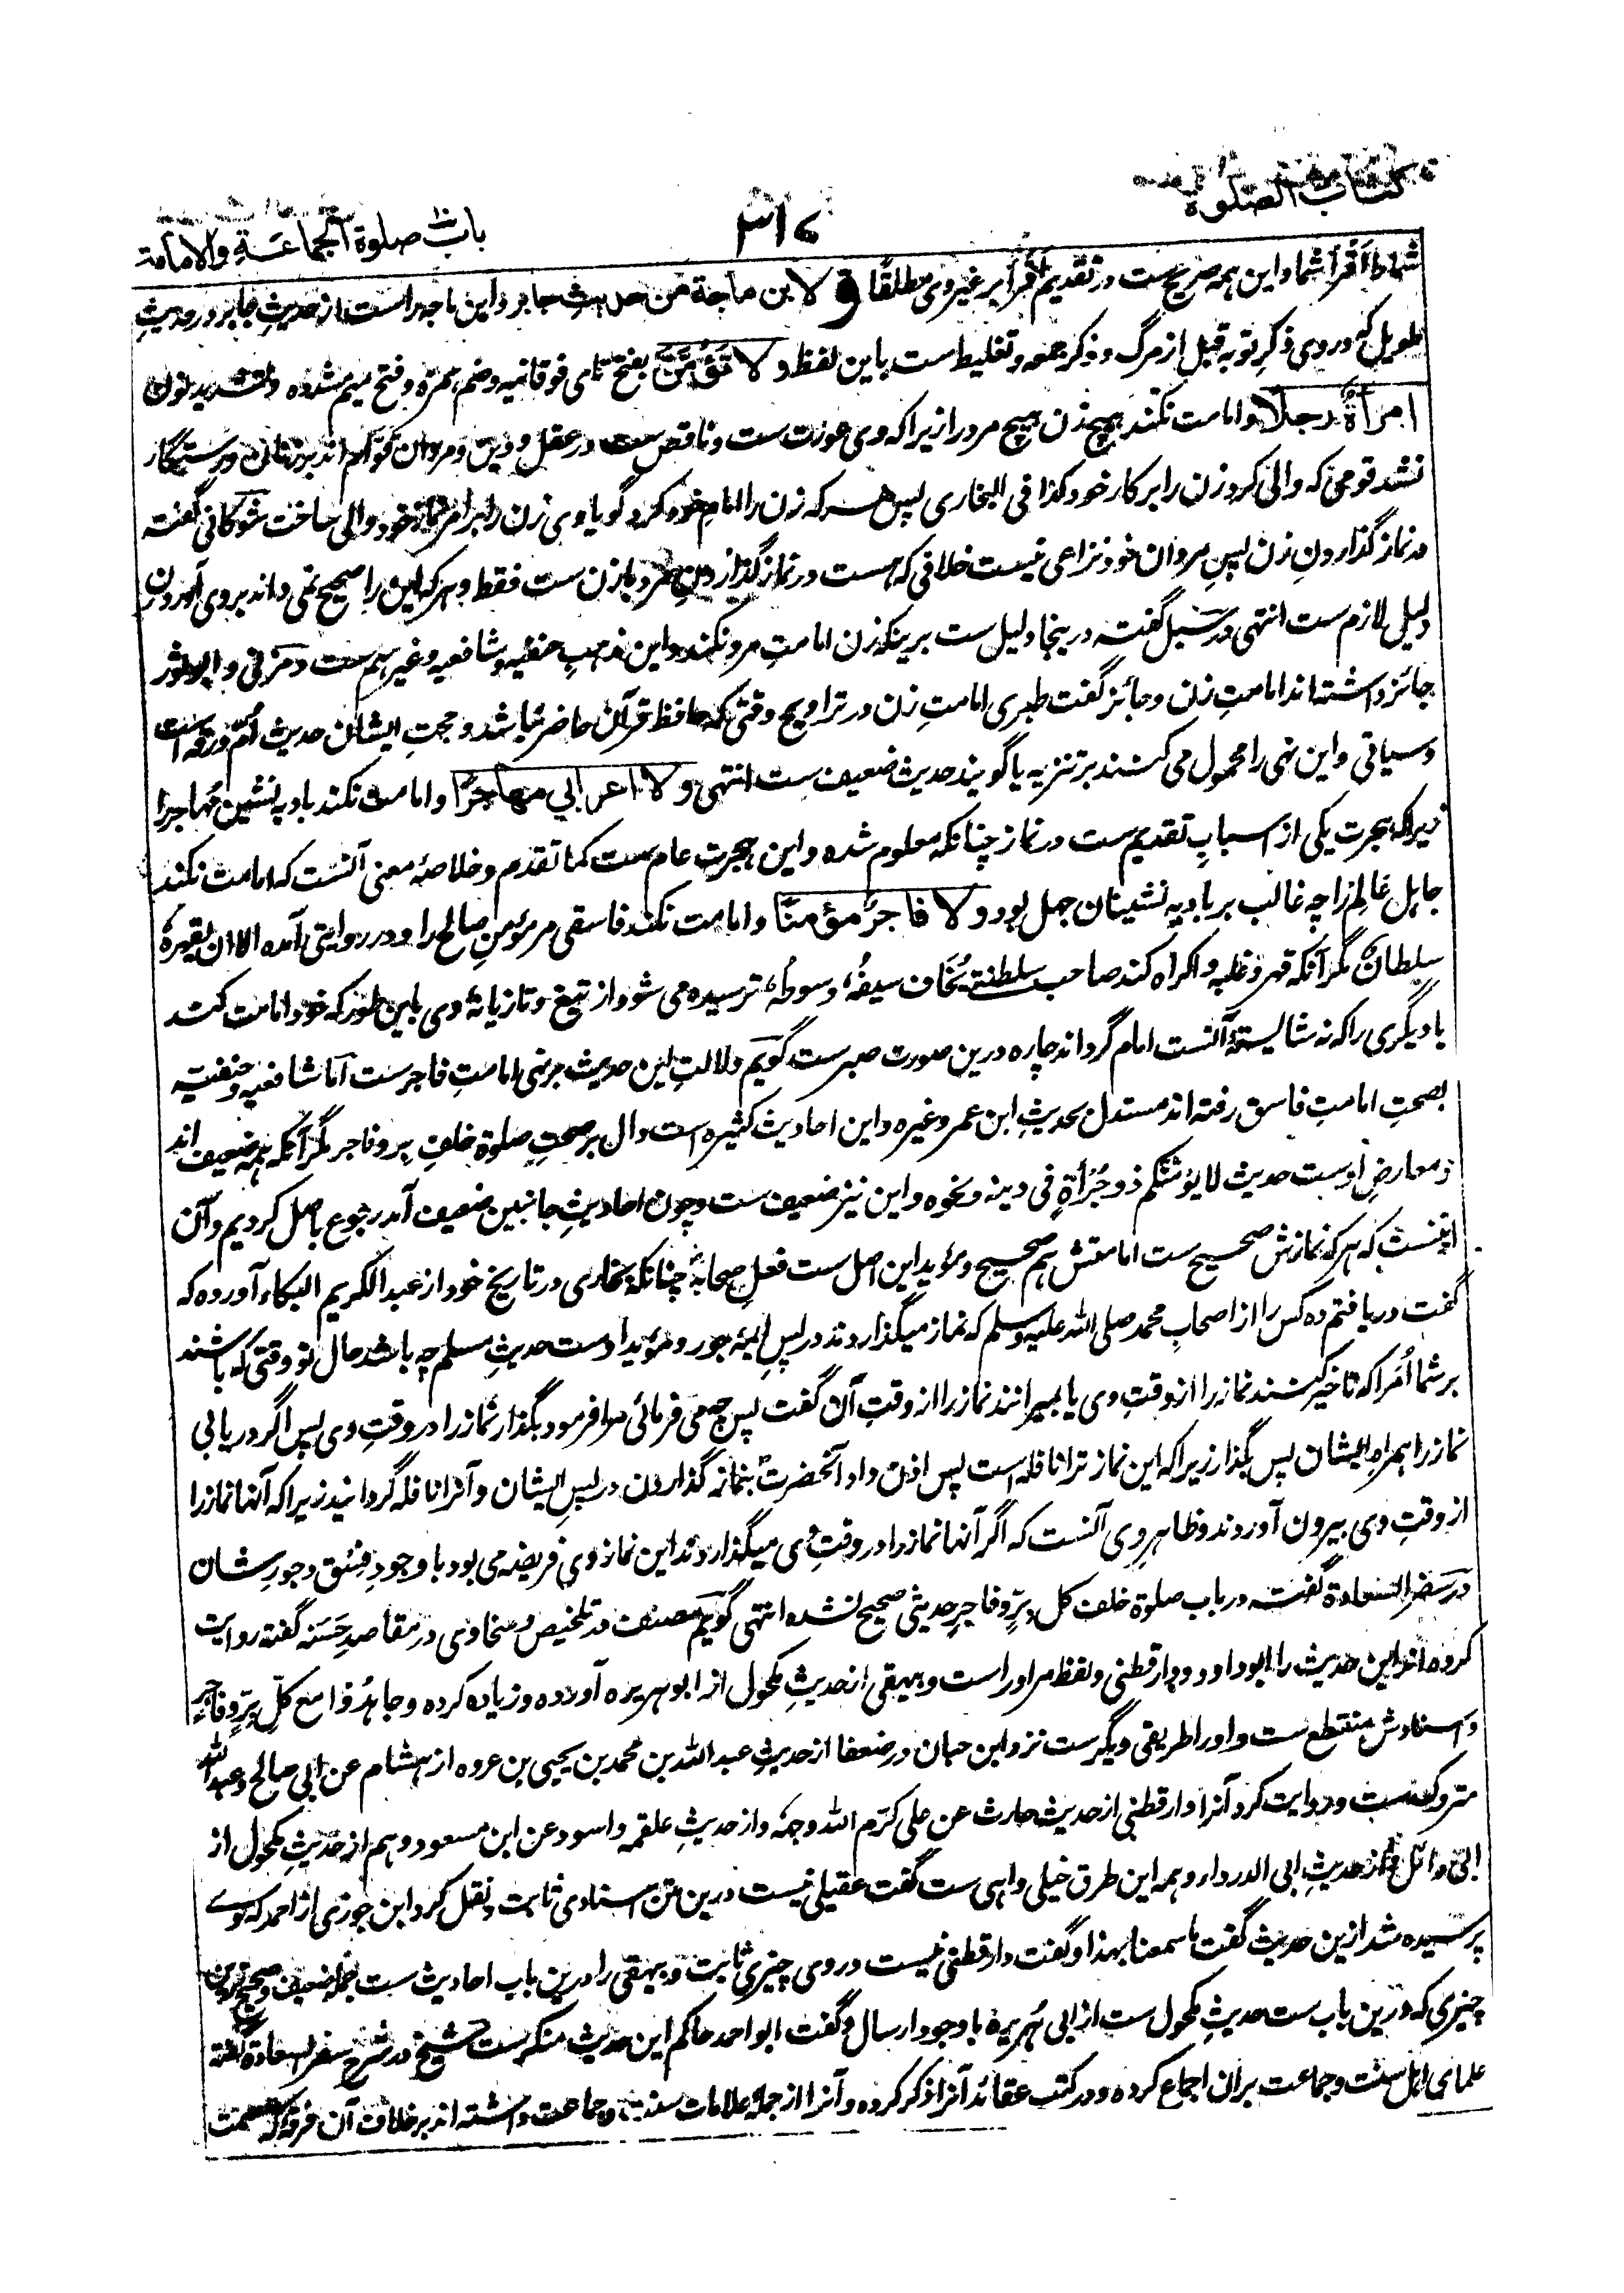 كتاب الصلوة
۳۱۷
باب صلوة الجماعة والامامة
شما اقرأ شما و این همه صریح ست در تقدیم اقرأ بر غیر وی مطلقًا و لابن ماجة من حديث جابر و ابن ماجه راست از حدیثِ جابر در حدیثِ
طویل که در وی ذکرِ توبه قبل از مرگ و ذکر جمعه و تغلیظ است باین لفظ و لا تَؤُمَّنَّ بفتح تای فوقانیه و ضم همزه و فتح میم مشدده و تشدید نون
امرأةٌ رجلًا و امامت نکند هیچ زن هیچ مرد را زیراکه وی عورت ست و ناقص ست در عقل و دین و مردان قوّام اند بر زنان و رستگار
نشد قومی که والی کرد زن را بر کار خود کذا فی البخاری پس هر که زن را امامِ خود کرد گویا وی زن را بر امرِ نمازِ خود والی ساخت شوکانی گفته
در نماز گذاردنِ زن پسِ مردان خود نزاعی نیست خلافی که هست در نماز گذاردنِ مرد با زن ست فقط و هر که این را صحیح نمی داند بر وی آوردن
دلیل لازم ست انتهی در سبل گفته درینجا دلیل ست برینکه زن امامتِ مرد نکند و این مذهبِ حنفیه و شافعیه و غیرهم ست و مزنی و ابو ثور
جائز داشته اند امامتِ زن و جائز گفت طبری امامتِ زن در تراویح وقتی که حافظِ قرآن حاضر نباشد و حجتِ ایشان حدیث اُمّ ورقه است
و سیاتی و این نهی را محمول می کنند بر تنزیه یا گویند حدیث ضعیف ست انتهی و لا اعرابي مهاجرًا و امامت نکند بادیه نشین مُهاجر را
زیراکه هجرت یکی از اسبابِ تقدیم ست در نماز چنانکه معلوم شده و این هجرت عام ست کما تقدم و خلاصۀ معنی آنست که امامت نکند
جاهل عالم را چه غالب بر بادیه نشینان جهل بود و لا فاجرٌ مؤمنًا و امامت نکند فاسقی مر مؤمنِ صالح را و در روایتی آمده الا ان یقهره
سلطان مگر آنکه قهر و غلبه و اکراه کند صاحب سلطنة یُخاف سیفُه و سوطُه ترسیده می شود از تیغ و تازیانۀ وی باین طور که خود امامت کند
یا دیگری را که نه شایستۀ آنست امام گرداند چاره درین صورت صبر ست گویم دلالتِ این حدیث بر نهی امامتِ فاجر ست امّا شافعیه و حنفیه
بصحتِ امامتِ فاسق رفته اند مستدل بحدیثِ ابن عمر و غیره و این احادیث کثیره است دال بر صحتِ صلوة خلفِ بر و فاجر مگر آنکه همه ضعیف اند
و معارضِ اوست حدیث لا یؤمنّکم ذو جُرْأةٍ فی دینه و نحوه و این نیز ضعیف ست و چون احادیثِ جانبین ضعیف آمد رجوع باصل کردیم و آن
اینست که هر که نمازش صحیح ست امامتش هم صحیح و مؤید این اصل ست فعلِ صحابه چنانکه بخاری در تاریخ خود از عبد الکریم البکاء آورده که
گفت دریافتم ده کس را از اصحابِ محمد صلی الله علیه وسلم که نماز میگذاردند در پسِ ایمۀ جور و مؤید اوست حدیثِ مسلم چه باشد حال تو وقتی که باشند
بر شما اُمَرا که تاخیر کنند نماز را از وقتِ وی یا بمیرانند نماز را از وقتِ آن گفت پس چه می فرمائی مرا فرمود بگذار نماز را در وقتِ وی پس اگر دریابی
نماز را همراه ایشان پس بگذار زیراکه این نماز ترا نافله است پس اذن داد آنحضرت بنماز گذاردن در پسِ ایشان و آنرا نافله گردانید زیراکه آنها نماز را
از وقتِ وی بیرون آوردند و ظاهرِ وی آنست که اگر آنها نماز را در وقتِ وی میگذاردند این نماز وی فریضه می بود با وجودِ فسق و جورِ شان
در سفر السعادة گفته در باب صلوة خلف کل برٍّ و فاجرٍ حدیثی صحیح نشده انتهی گویم مصنف در تلخیص و سخاوی در مقاصدِ حَسَنه گفته روایت
کرده اند این حدیث را ابو داود و دارقطنی و لفظ مر او راست و بیهقی از حدیثِ مکحول از ابو هریره آورده و زیاده کرده و جاهدُوا مع کلِّ بِرٍّ و فاجرٍ
و اسنادش منقطع ست و او را طریقی دیگر ست نزد ابن حبان در ضعفا از حدیثِ عبد الله بن محمد بن یحیی بن عروه از هشام عن ابی صالح و عبد الله
متروک ست و روایت کرد آنرا دارقطنی از حدیث حارث عن علی کرّم الله وجهه و از حدیثِ علقمه و اسود عن ابن مسعود و هم از حدیثِ مکحول از
ابی وائل و از حدیثِ ابی الدرداء و همه این طرق خیلی واهی ست گفت عقیلی نیست درین متن اسنادی ثابت و نقل کرد ابن جوزی از احمد که وے
پرسیده شد ازین حدیث گفت ما سمعنا بهذا و گفت دارقطنی نیست در وی چیزی ثابت و بیهقی را درین باب احادیث ست همه ضعیف و صحیح ترین
چیزی که درین باب ست حدیثِ مکحول ست از ابی هُریره با وجود ارسال و گفت ابو احمد حاکم این حدیث منکر ست شیخ در شرح سفر السعادة گفته
علمای اهل سنت و جماعت بران اجماع کرده و در کتب عقائد آنرا ذکر کرده و آنرا از جمله علامات سنت و جماعت داشته اند بر خلاف آن فرقه که